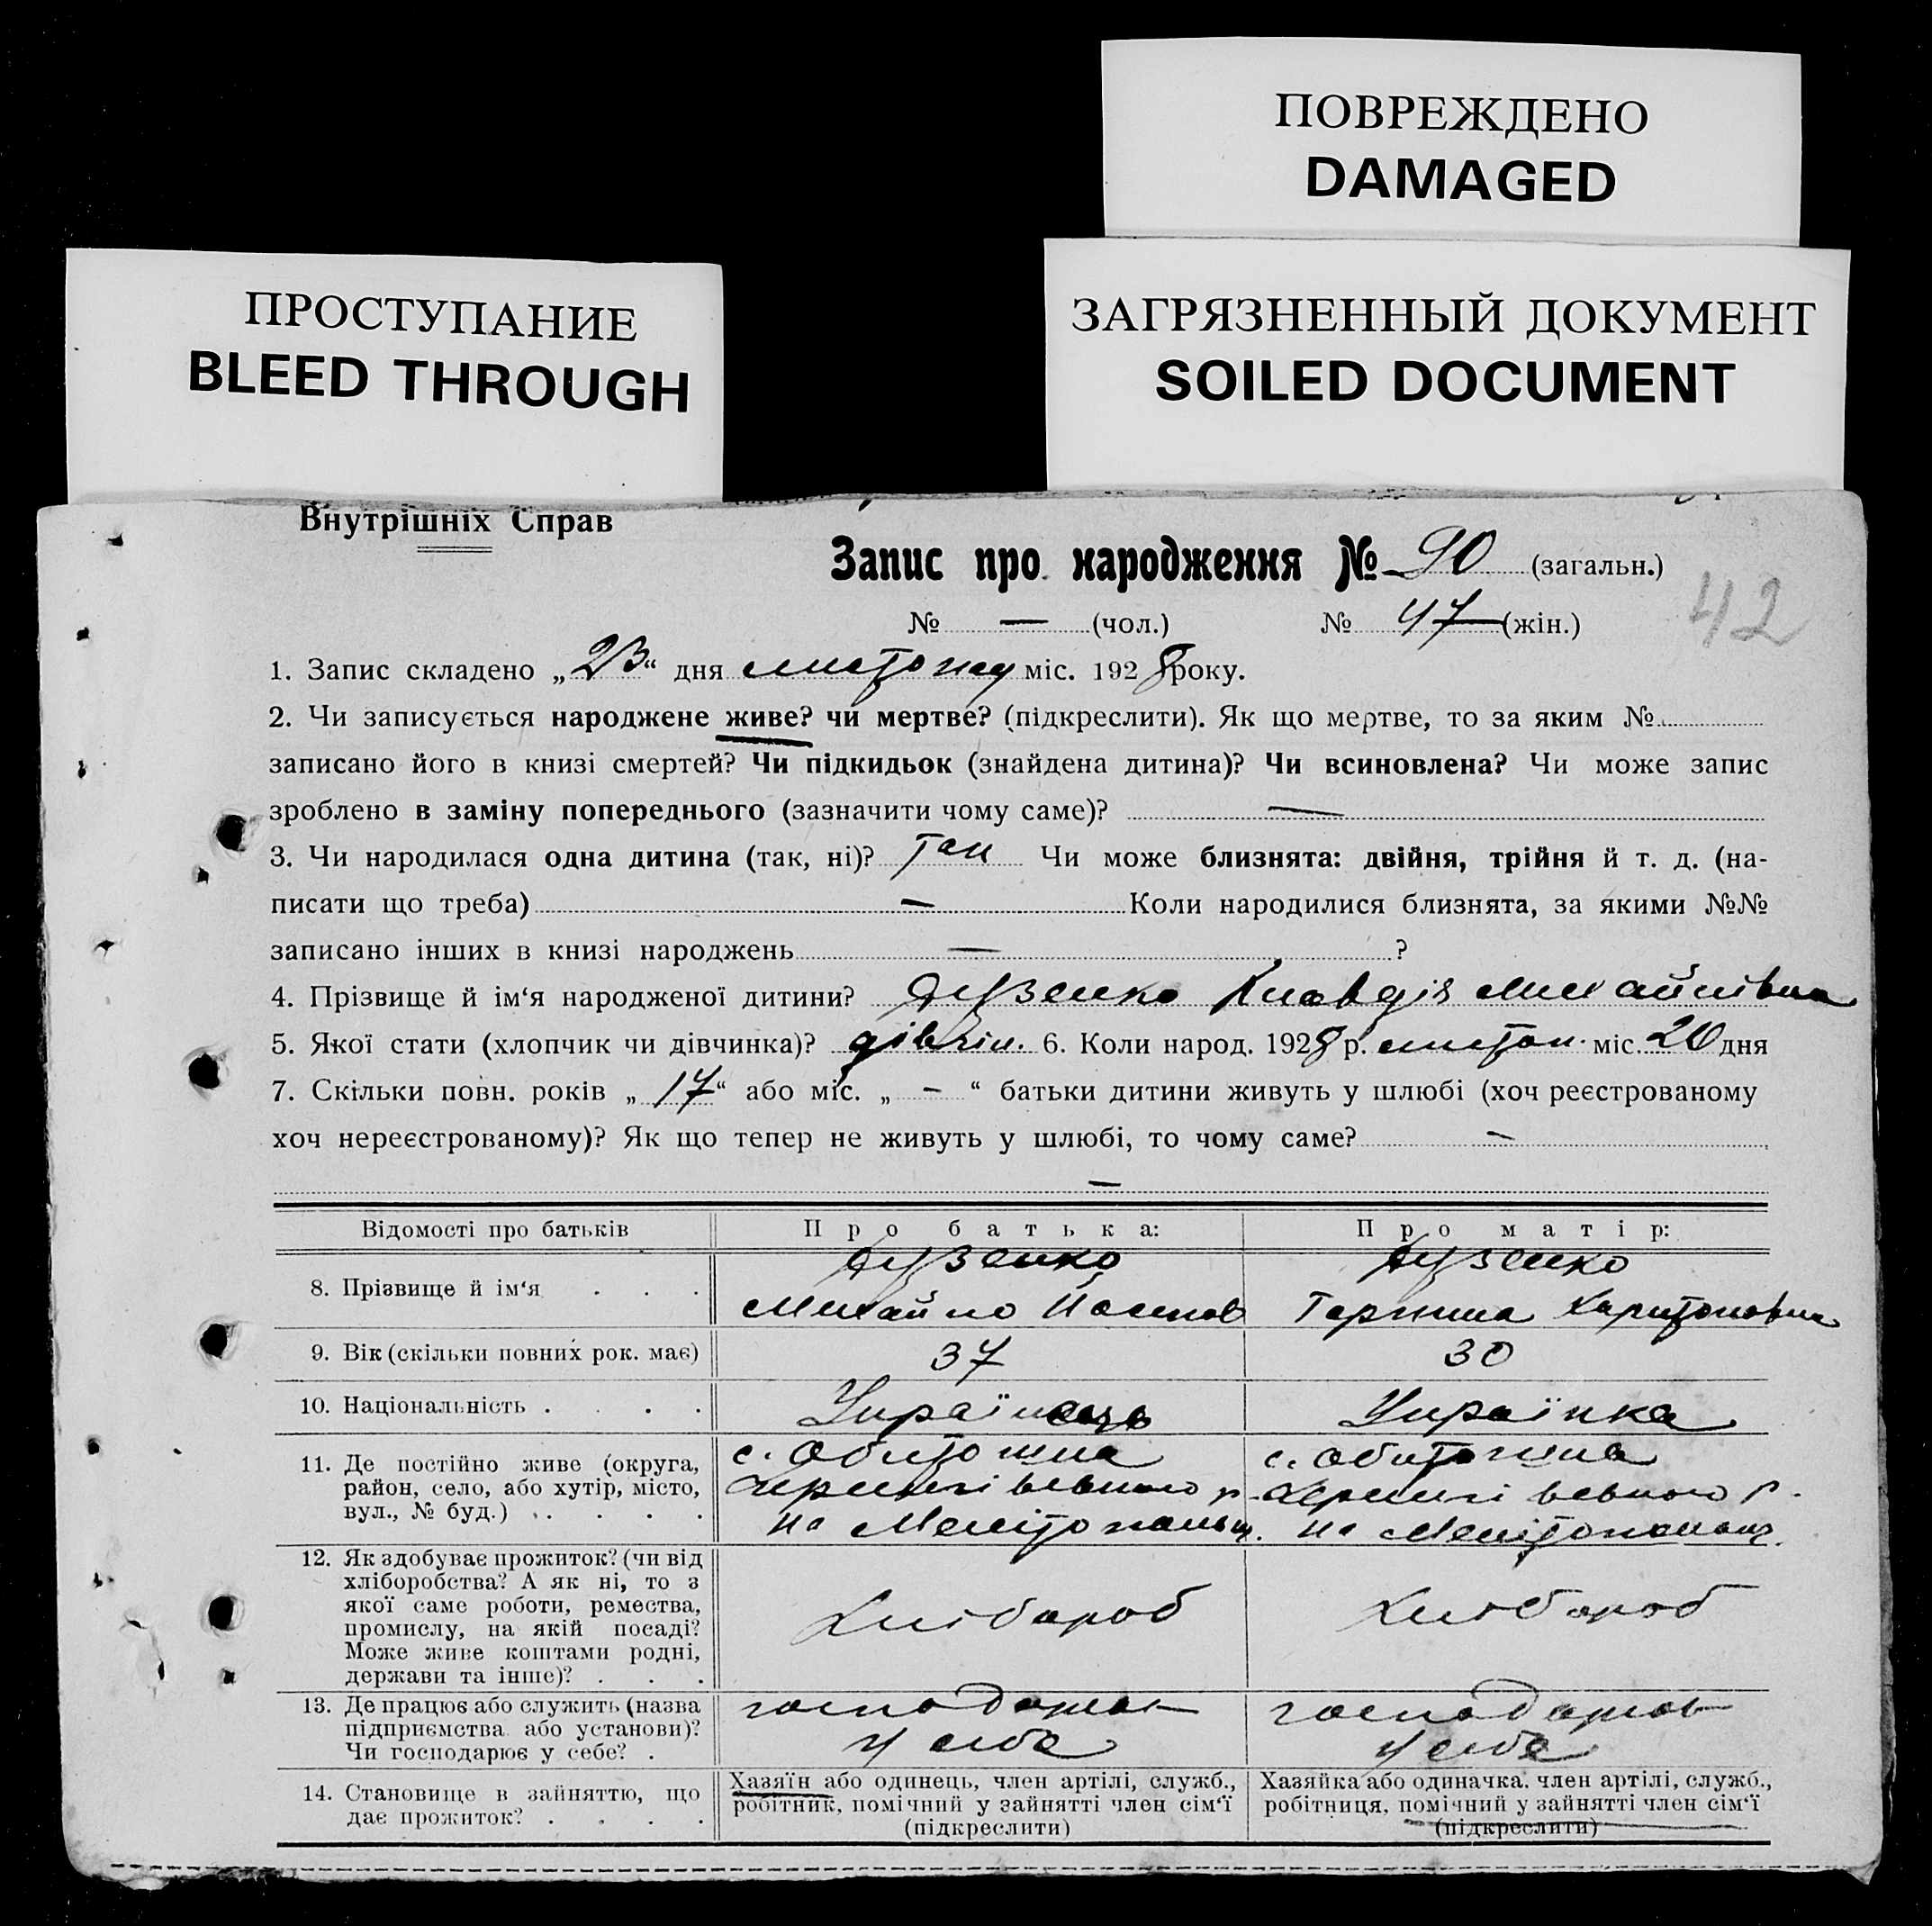 ПОВРЕЖДЕНО
DAMAGED
ПРОСТУПАНИЕ
BLEED THROUGH
ЗАГРЯЗНЕННЫЙ ДОКУМЕНТ
SOILED DOCUMENT
Внутрішніх Справ
Запис про народження № 90 (загальн.)
42
№ — (чол.) № 47 (жін.)
1. Запис складено „23“ дня листопад міс. 1928 року.
2. Чи записується народжене живе? чи мертве? (підкреслити). Як що мертве, то за яким №
записано його в книзі смертей? Чи підкидьок (знайдена дитина)? Чи всиновлена? Чи може запис
зроблено в заміну попереднього (зазначити чому саме)? —
3. Чи народилася одна дитина (так, ні)? Так Чи може близнята: двійня, трійня й т. д. (на-
писати що треба) — Коли народилися близнята, за якими №№
записано інших в книзі народжень — ?
4. Прізвище й ім‘я народженої дитини? Клавдія Михайлівна
5. Якої стати (хлопчик чи дівчинка)? дівчин. 6. Коли народ. 1928 р. листоп. міс. 20 дня
7. Скільки повн. років „17“ або міс. „ — “ батьки дитини живуть у шлюбі (хоч реєстрованому
хоч нереєстрованому)? Як що тепер не живуть у шлюбі, то чому саме? —
—
Відомості про батьків Про батька: Про матір:
8. Прізвище й ім‘я . . .
Михайло
Харитоновна
9. Вік (скільки повних рок. має) 37 30
10. Національність . . . . Українець Українка
11. Де постійно живе (округа,
район, село, або хутір, місто,
вул., № буд.) . . . . .
с. Обиточна
Чернигівевного р.
на Мелітопольщ.
с. Обиточна
Чернигівевного р.
на Мелітопольщ.
12. Як здобуває прожиток? (чи від
хліборобства? А як ні, то з
якої саме роботи, ремества,
промислу, на якій посаді?
Може живе коштами родні,
держави та інше)? . . .
Хлібороб
Хлібороб
13. Де працює або служить (назва
підприємства або установи)?
Чи господарює у себе? .
у себе
у себе
14. Становище в зайняттю, що
дає прожиток? . . . .
Хазяїн або одинець, член артілі, служб.,
робітник, помічний у зайнятті член сім‘ї
(підкреслити)
Хазяйка або одиначка, член артілі, служб.,
робітниця, помічний у зайнятті член сім‘ї
(підкреслити)